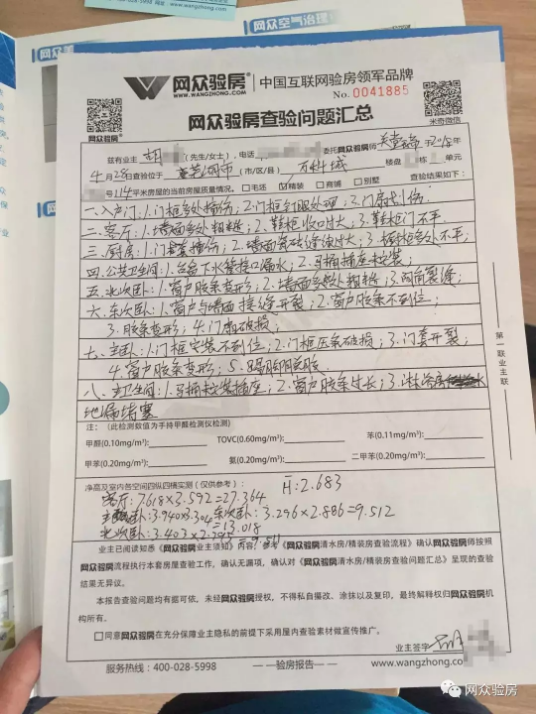 028-5998 网址：www.wangzhong.com
网众空气治理
网众验房 中国互联网验房领军品牌
WWW.WANGZHONG.COM
No. 0041885
网众验房 米奇微信
网众验房查验问题汇总
兹有业主 胡 (先生/女士)，电话 委托网众验房师
4月28日查验位于 芜湖市 (市/区/县) 万科城 楼盘 栋 单元
号114平米房屋的当前房屋质量情况。 毛坯 精装 商铺 别墅 查验结果如下：
一、入户门：1.门框多处撞伤；2.门框钉眼处理；3.门扇划伤
二、客厅：1.墙面多处粗糙；2.鞋柜收口过大；3.鞋柜门不平
三、厨房：1.门套撞伤；2.墙面瓷砖缝过大；3.橱柜多处不平；
四、公共卫生间：1.台盆下水管接口漏水；2.马桶插座未安装；
五、北次卧：1.窗户胶条变形；2.墙面多处粗糙；3.阴角裂缝；
六、东次卧：1.窗户与墙面接缝开裂；2.窗户胶条不到位；
3.胶条变形；4.门扇破损；
七、主卧：1.门框安装不到位；2.门框压条破损；3.门套开裂；
4.窗户胶条变形；5.踢脚脱胶
八、主卫生间：1.马桶未安装插座；2.窗户胶条过长；3.淋浴房
地漏堵塞
注：（此检测数值为手持甲醛检测仪检测）
甲醛(0.10mg/m³): TOVC(0.60mg/m³): 苯(0.11mg/m³):
甲苯(0.20mg/m³): 氨(0.20mg/m³): 二甲苯(0.20mg/m³):
净高及室内各空间四纵四横实测（仅供参考）： H:2.683
客厅：7.618×3.592=27.364
主卧：3.940×3.304=13.018 东次卧：3.296×2.886=9.512
北次卧：3.403×
业主已阅读知悉《网众验房业主须知》内容，参考《网众验房清水房/精装房查验流程》确认网众验房师按照
网众验房流程执行本套房屋查验工作，确认无漏项，确认对《网众验房清水房/精装房查验问题汇总》呈现的查验
结果无异议。
本报告查验问题均有据可依，未经网众验房授权，不得私自撮改、涂抹以及复印，最终解释权归网众验房机
构所有。
同意网众验房在充分保障业主隐私的前提下采用屋内查验素材做宣传推广。
业主签字
服务热线：400-028-5998 一验房报告一 www.wangzhong.co
第一联业主联
网众验房